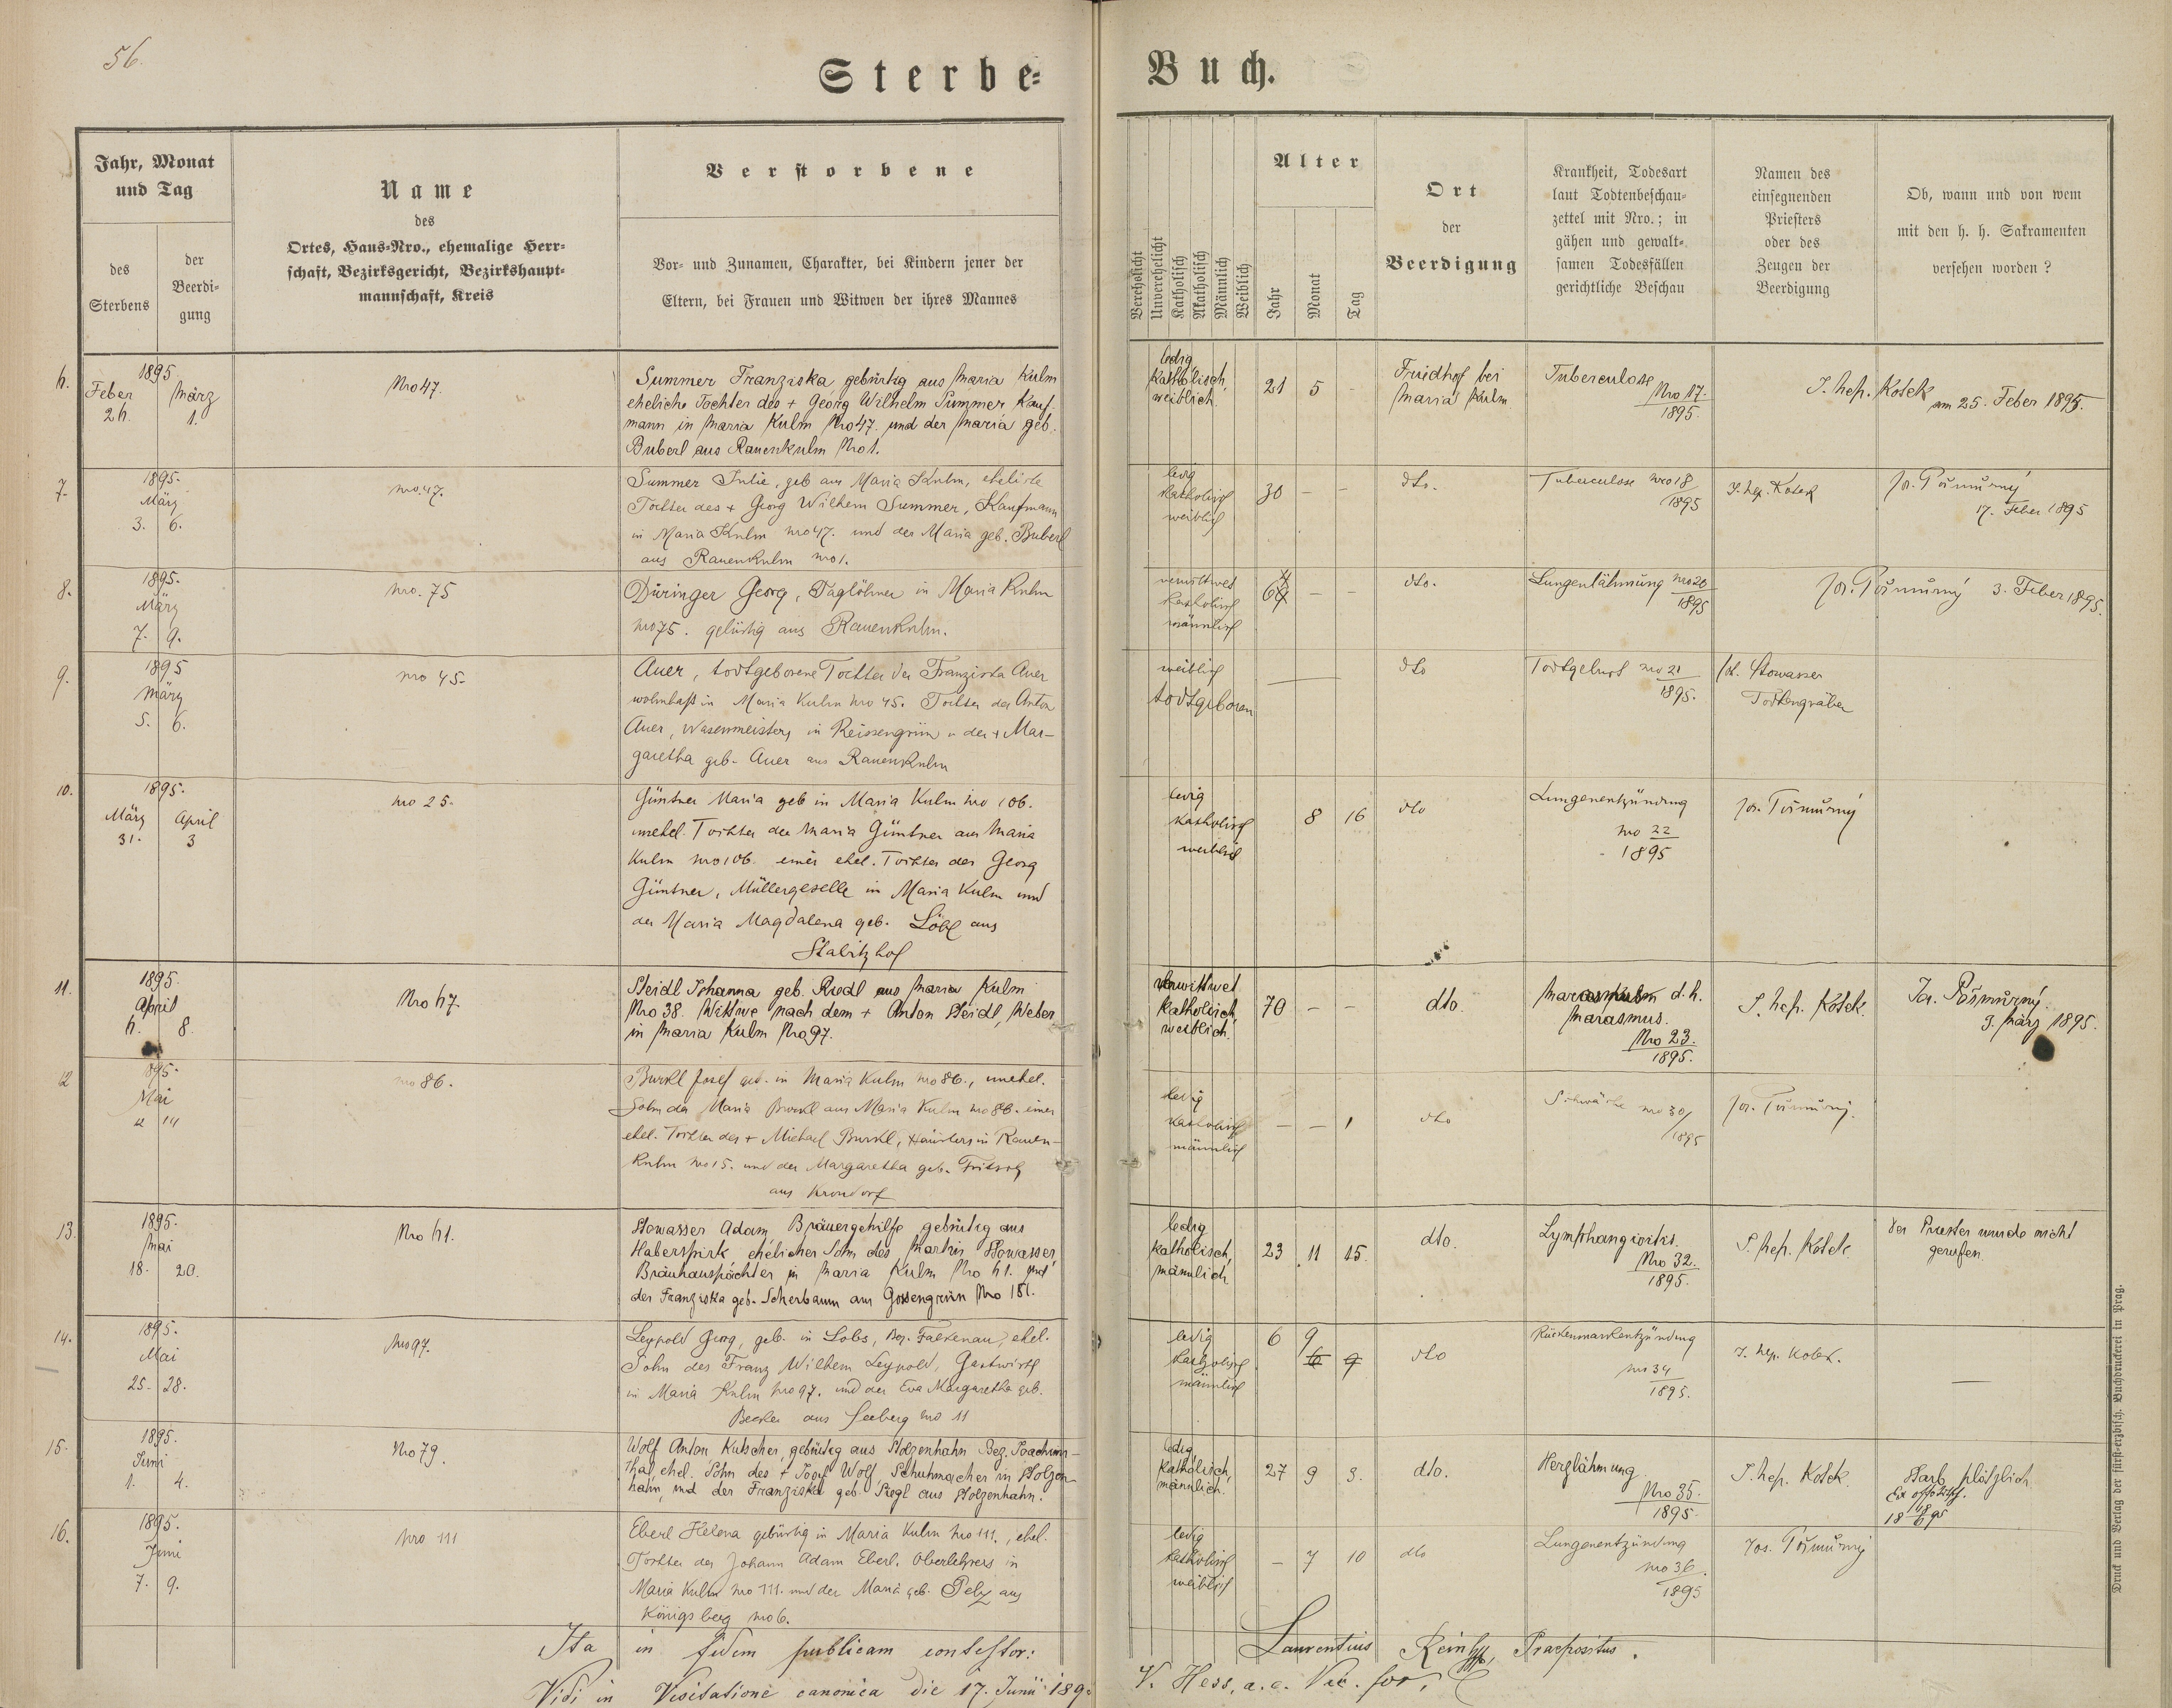 56.
Sterbe-
Buch.
Jahr, Monat
und Tag
des
Sterbens
der
Beerdi-
gung
Name
des
Ortes, Haus-Nro., ehemalige Herr-
schaft, Bezirksgericht, Bezirkshaupt-
mannschaft, Kreis
Verstorbene
Vor- und Zunamen, Charakter, bei Kindern jener der
Eltern, bei Frauen und Witwen der ihres Mannes
Verehelicht
Unverehelicht
Katholisch
Akatholisch
Männlich
Weiblich
Alter
Jahr
Monat
Tag
Ort
der
Beerdigung
Krankheit, Todesart
laut Todtenbeschau-
zettel mit Nro.; in
gähen und gewalt-
samen Todesfällen
gerichtliche Beschau
Namen des
einsegnenden
Priesters
oder des
Zeugen der
Beerdigung
Ob, wann und von wem
mit den h. h. Sakramenten
versehen worden ?
1895
Feber März
1.
Nro 47.
Summer Franziska, gebürtig aus Maria Kulm
eheliche Tochter des + Georg Wilhelm Summer, Kauf-
mann in Maria Kulm Nro 47. und der Maria geb.
Buberl aus Rauenkulm Nro 1.
ledig
katholisch,
weiblich.
21 5 -
Friedhof bei
Maria Kulm
Tuberculose
Nro 17.
1895.
Kosek
am 25. Feber 1895.
7.
1895.
März
3. 6.
nro. 47.
Summer Julie, geb aus Maria Kulm, eheliche
Tochter des + Georg Wilhelm Summer, Kaufmann
in Maria Kulm nro 47. und der Maria geb. Buberl
aus Rauenkulm nro 1.
ledig
katholisch
weiblich
30 - -
dto.
Tuberculose nro 18
1895
Kosek
17. Feber 1895
8.
1895.
März
7. 9.
nro. 75
Düringer Georg, Taglöhner in Maria Kulm
nro 75. gebürtig aus Rauenkulm.
verwittwet
katholisch
männlich
- -
dto.
Lungenlähmung nro 20
1895
3. Feber 1895.
9.
1895
März
5. 6.
nro 45.
Auer, todtgeborene Tochter der Franziska Auer
wohnhaft in Maria Kulm nro 45. Tochter des Anton
Auer, Wasenmeisters in Reissengrün u der + Mar-
garetha geb. Auer aus Rauenkulm
weiblich
todtgeboren
dto
Todtgeburt nro 21
1895.
Stowasser
Todtengräber
10.
1895.
März April
31. 3
nro 25.
Güntner Maria geb in Maria Kulm nro 106.
unehel. Tochter der Maria Güntner aus Maria
Kulm nro 106. einer ehel. Tochter des Georg
Güntner, Müllergeselle in Maria Kulm und
der Maria Magdalena geb. Löbl aus
Stabitzhof
ledig
katholisch
weiblich
8 16
dto
Lungenentzündung
nro 22
1895
11.
1895.
April
8.
Steidl Johanna geb. Riedl aus Maria Kulm
Nro 38. Wittwe nach dem + Anton Steidl, Weber
in Maria Kulm Nro 97.
verwittwet
katholisch,
weiblich.
70 - -
dto.
d.h.
Marasmus.
Nro 23.
1895.
Kosek.
März 1895.
12
1895.
Mai
14
nro 86.
Burkl Josef geb. in Maria Kulm nro 86., unehel.
Sohn der Maria Burkl aus Maria Kulm nro 86. einer
ehel. Tochter des + Michael Burkl, Häuslers in Rauen-
kulm nro 15. und der Margaretha geb. Fritsch
aus Krondorf
ledig
katholisch
männlich
- - 1
dto
Schwäche nro 30/
1895
13.
1895.
Mai
18. 20.
Stowasser Adam, Bräuergehilfe gebürtig aus
Haberspirk, ehelicher Sohn des Martin Stowasser
Bräuhauspächter in Maria Kulm und
der Franziska geb. Scherbaum aus Gossengrün Nro 151.
ledig
katholisch,
männlich
23 11 15.
dto.
Nro 32.
1895.
Kosek
Der Priester wurde nicht
gerufen.
14.
1895.
Mai
25. 28.
Nro 97.
Leypold Georg, geb. in Lobs, Bez. Falkenau, ehel.
Sohn des Franz Wilhelm Leypold, Gastwirth
in Maria Kulm nro 97. und der Eva Margaretha geb.
Becker aus Seeberg nro 11
ledig
katholisch
männlich
6 9
dto
Rückenmarkentzündung
nro 34
1895.
Kosek.
15.
1895.
Juni
1. 4.
Nro 79.
Wolf Anton Kutscher, gebürtig aus Stolzenhahn Bez. Joachims-
thal, ehel. Sohn des + Josef Wolf, Schuhmacher in Stolzen-
hahn, und der Franziska geb. Siegl aus Stolzenhahn.
ledig,
katholisch,
männlich.
27 9 3.
dto.
Herzlähmung
Nro 35.
1895.
Kosek.
Starb plötzlich
16.
1895.
Juni
7. 9.
Nro 111
Eberl Helena gebürtig in Maria Kulm nro 111., ehel.
Tochter des Johann Adam Eberl. Oberlehrers in
Maria Kulm nro 111. und der Maria geb. Pelz aus
Königsberg nro 6.
ledig
katholisch
weiblich
- 7 10
dto
Lungenentzündung
nro 36.
1895
Ita in fidem publicam contestor:
Laurentius Praepositus.
Vidi in Visitatione canonica die 17. Junii 189
V. Hess, a. e. Vic. for.
Druck und Verlag der fürst-erzbisch. Buchdruckerei in Prag.